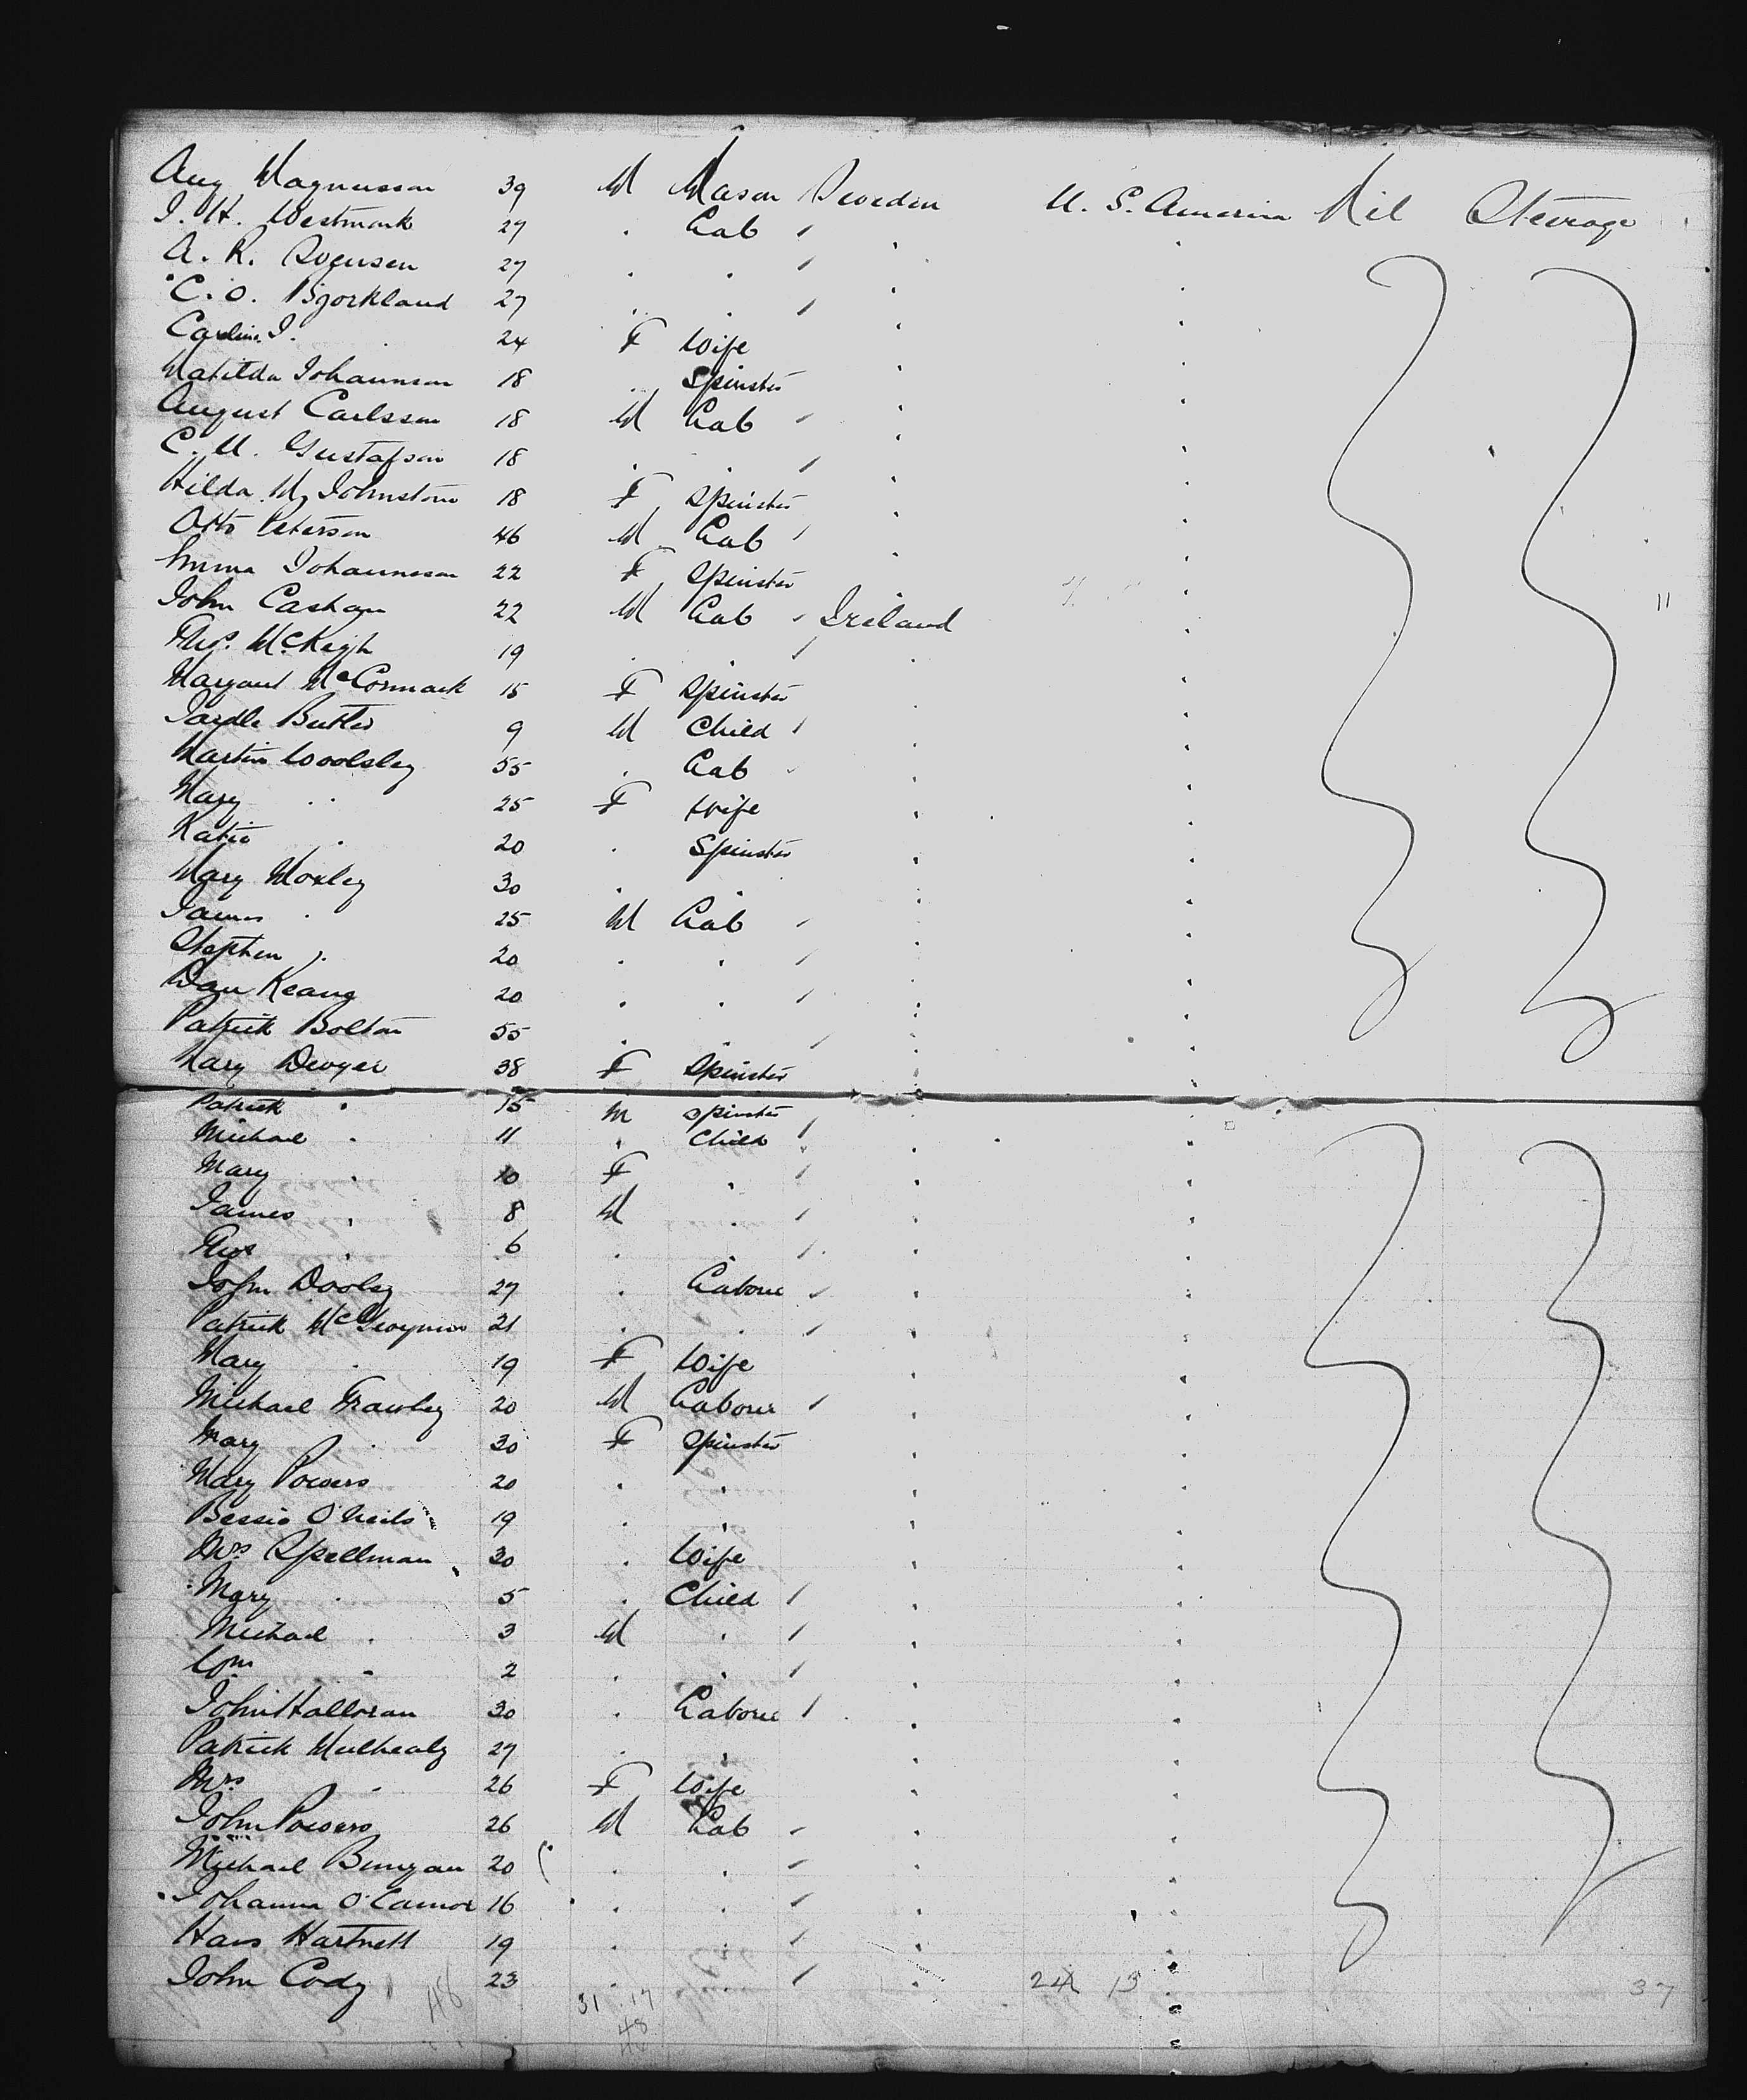 Aug Magnusson 39 M Mason Sweden U. S. America Nil Steerage
J. H. Westmark 27 . Lab
A. R. Svensen 27 . .
C. O. Bjorkland 27 . .
Carolin. J. . 24 F Wife
Matilda Johannson 18 . Spinster
August Carlsson 18 M Lab
C. M. Gustafson 18 . .
Hilda M. Johnstone 18 F Spinster
Otto Peterson 46 M Lab
Emma Johannsson 22 F Spinster
John Cashan 22 M Lab Ireland 11
Thos. McKeigh 19 . .
Margaret McCormack 15 F Spinster
Butler 9 M Child
Martin Woolsley 55 . Lab
Mary . . 25 F Wife
Katie . 20 . Spinster
Mary Moxley 30 . .
James . 25 M Lab
Stephen . 20 . .
Dan Keang 20 . .
Patrick Bolton 55 . .
Mary Dwyer 38 F Spinster
Patrick . 15 M Spinster
Michael . 11 . Child
Mary . 10 F .
James . 8 M .
Thos . 6 . .
John Dooley 27 . Labour
Patrick 21 . .
Mary . 19 F Wife
Michael Frawley 20 M Labour
Mary . 30 F Spinster
Mary Powers 20 . .
Bessie O'Neils 19 . .
Mrs Spellman 30 . Wife
Mary . 5 . Child
Michael . 3 M .
Wm . 2 . .
John Halloran 30 . Labour
Patrick Mulhealy 27 . .
Mrs . 26 F Wife
John Powers 26 M Lab
Michael Bunyan 20 . .
Johanna O'Connor 16 . .
Hans Hartnett 19 . .
John Cody 23 . . 24 13 37
48 31 17
48